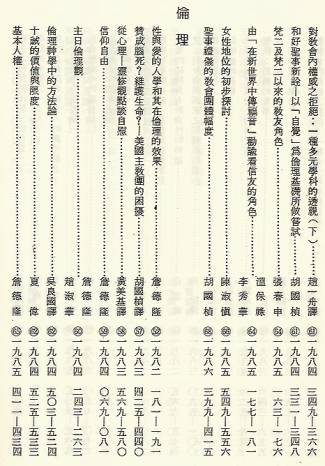 對敎會內權威之拒絕：一種多元學科的透視（下）……趙一舟譯 ㉑ 一九八四 三四九—三六〇
和好聖事新詮—以「自覺」爲倫理基礎所做嘗試……胡國楨 一九八四 三三一—三四八
梵二及梵二以來的敎友角色……張春申 一九八五 一六三—一七六
由「在新世界中傳福音」勸諭看信友的角色……溫保祿
李秀華 一九八五 一七七—一八一
女性地位的初步探討……陳淑慎 一九八五 五四九—五五六
聖事禮儀的敎會團體幅度……胡國楨 一九八六 三九九—四一五
倫理
性與愛的人學和其在倫理的效果……詹德隆 一九八二 一八一—一九一
贊成腦死？維護生命？—美國主敎團的困擾……胡國楨譯 一九八三 四二五—四四〇
從心理—靈修觀點談自慰……黃美基譯 一九八三 五六九—五八〇
信仰自由……詹德隆 一九八四 〇六九—〇八一
主日倫理觀……詹德隆
趙淑華 一九八四 二四三—二六三
倫理神學中的方法論……吳良國譯 一九八四 五〇三—五二四
十誡的價値與限度……夏偉 一九八四 五二五—五三三
基本人權……詹德隆 一九八五 四一一—四三四